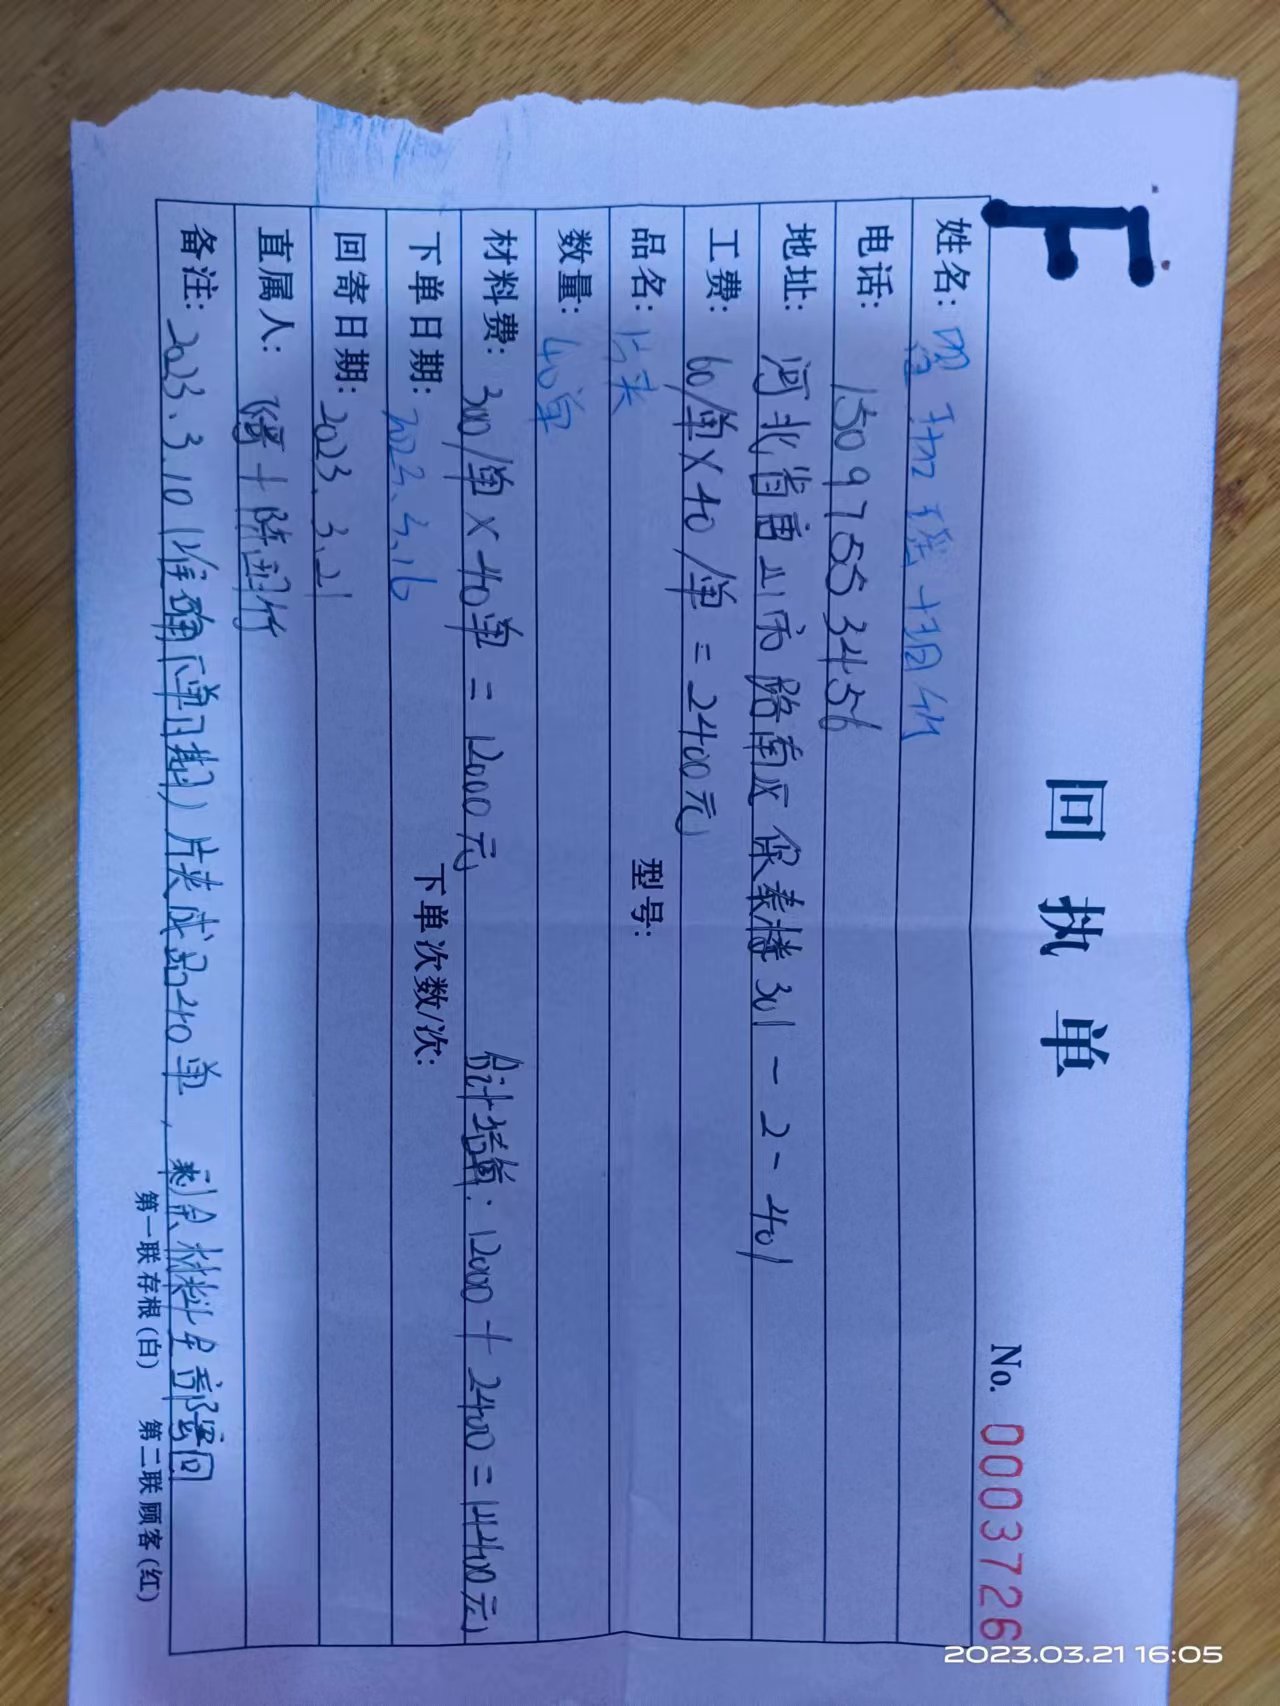 E
回执单
No. 0003726
姓名:
电话: 15097553456
地址: 河北省唐山市路南区保泰楼301-2-401
工费: 60/单×40/单=2400元
品名: 片夹 型号:
数量: 40单
材料费: 300/单×40单=12000元 合计结算:12000+2400=14400元
下单日期: 2023.3.16 下单次数/次:
回寄日期: 2023.3.21
直属人:
备注: 2023.3.10(准确下单日期)片夹成品40单,剩余材料全部寄回
第一联 存根(白) 第二联 顾客(红)
2023.03.21 16:05